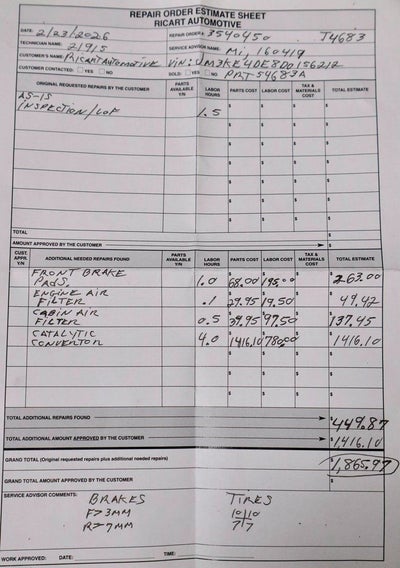 REPAIR ORDER ESTIMATE SHEET
RICART AUTOMOTIVE
DATE: 2/23/2026 REPAIR ORDER # 3540450 J4683
TECHNICIAN NAME: 21915 SERVICE ADVISOR NAME: Mi, 160419
CUSTOMER'S NAME: Ricart Automotive VIN: JM3KE4DE8D0156212
CUSTOMER CONTACTED: YES NO SOLD: YES NO PRT-54683A
ORIGINAL REQUESTED REPAIRS BY THE CUSTOMER PARTS AVAILABLE Y/N LABOR HOURS PARTS COST LABOR COST TAX & MATERIALS COST TOTAL ESTIMATE
AS-IS
INSPECTION/LOF 1.5 $ $ $ $
TOTAL $
AMOUNT APPROVED BY THE CUSTOMER $
CUST. APPR. Y/N ADDITIONAL NEEDED REPAIRS FOUND PARTS AVAILABLE Y/N LABOR HOURS PARTS COST LABOR COST TAX & MATERIALS COST TOTAL ESTIMATE
FRONT BRAKE
PADS. 1.0 68.00 195.00 263.00
ENGINE AIR
FILTER .1 29.95 19.50 49.42
CABIN AIR
FILTER 0.5 39.95 97.50 137.45
CATALYTIC
CONVERTOR 4.0 1416.10 780.00 1416.10
TOTAL ADDITIONAL REPAIRS FOUND $449.87
TOTAL ADDITIONAL AMOUNT APPROVED BY THE CUSTOMER $1,416.10
GRAND TOTAL (Original requested repairs plus additional needed repairs) $1,865.97
GRAND TOTAL AMOUNT APPROVED BY CUSTOMER $
SERVICE ADVISOR COMMENTS: BRAKES TIRES
F>3MM 10|10
R>7MM 7|7
WORK APPROVED: DATE: TIME: